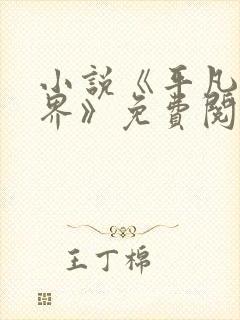 小説《平凡
界》免費閱
王丁棉